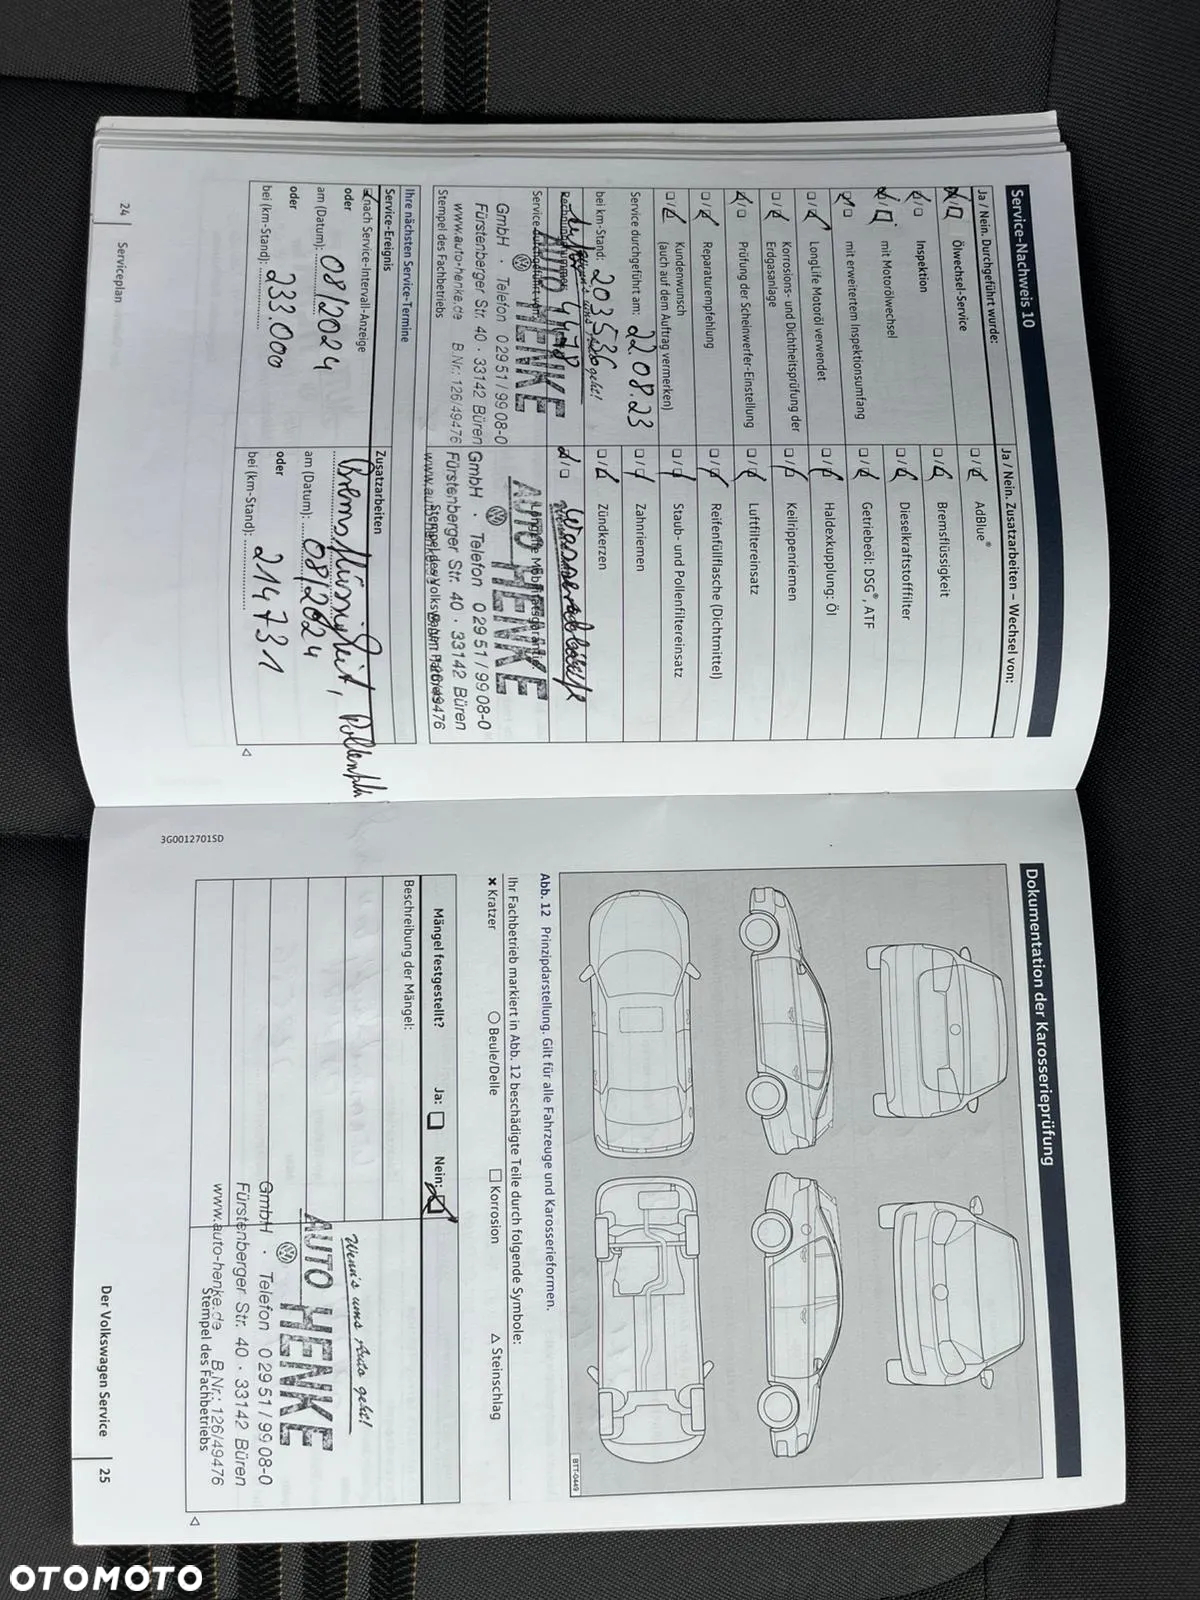 Service-Nachweis 10
Ja / Nein. Durchgeführt wurde:
Ölwechsel-Service
Inspektion
mit Motorölwechsel
mit erweitertem Inspektionsumfang
LongLife Motoröl verwendet
Korrosions- und Dichtheitsprüfung der
Erdgasanlage
Prüfung der Scheinwerfer-Einstellung
Reparaturempfehlung
Kundenwunsch
(auch auf dem Auftrag vermerken)
Service durchgeführt am: 22.08.23
bei km-Stand: 203.536
AUTO HENKE
GmbH · Telefon 0 29 51 / 99 08-0
Fürstenberger Str. 40 · 33142 Büren
www.auto-henke.de B.Nr.: 126/49476
Stempel des Fachbetriebs
Ja / Nein. Zusatzarbeiten – Wechsel von:
AdBlue®
Bremsflüssigkeit
Dieselkraftstofffilter
Getriebeöl: DSG®, ATF
Haldexkupplung: Öl
Keilrippenriemen
Luftfiltereinsatz
Reifenfüllflasche (Dichtmittel)
Staub- und Pollenfiltereinsatz
Zahnriemen
Zündkerzen
AUTO HENKE
GmbH · Telefon 0 29 51 / 99 08-0
Fürstenberger Str. 40 · 33142 Büren
Ihre nächsten Service-Termine
Service-Ereignis
nach Service-Intervall-Anzeige
oder
am (Datum): 08/2024
oder
bei (km-Stand): 233.000
Zusatzarbeiten
Bremsflüssigkeit,
am (Datum): 08/2024
oder
bei (km-Stand): 214731
24 Serviceplan
3G0012701SD
Dokumentation der Karosserieprüfung
BTT-0449
Abb. 12 Prinzipdarstellung. Gilt für alle Fahrzeuge und Karosserieformen.
Ihr Fachbetrieb markiert in Abb. 12 beschädigte Teile durch folgende Symbole:
× Kratzer ○ Beule/Delle □ Korrosion △ Steinschlag
Mängel festgestellt? Ja: Nein:
Beschreibung der Mängel:
Wenn's ums Auto geht!
AUTO HENKE
GmbH · Telefon 0 29 51 / 99 08-0
Fürstenberger Str. 40 · 33142 Büren
www.auto-henke.de B.Nr.: 126/49476
Stempel des Fachbetriebs
Der Volkswagen Service 25
OTOMOTO